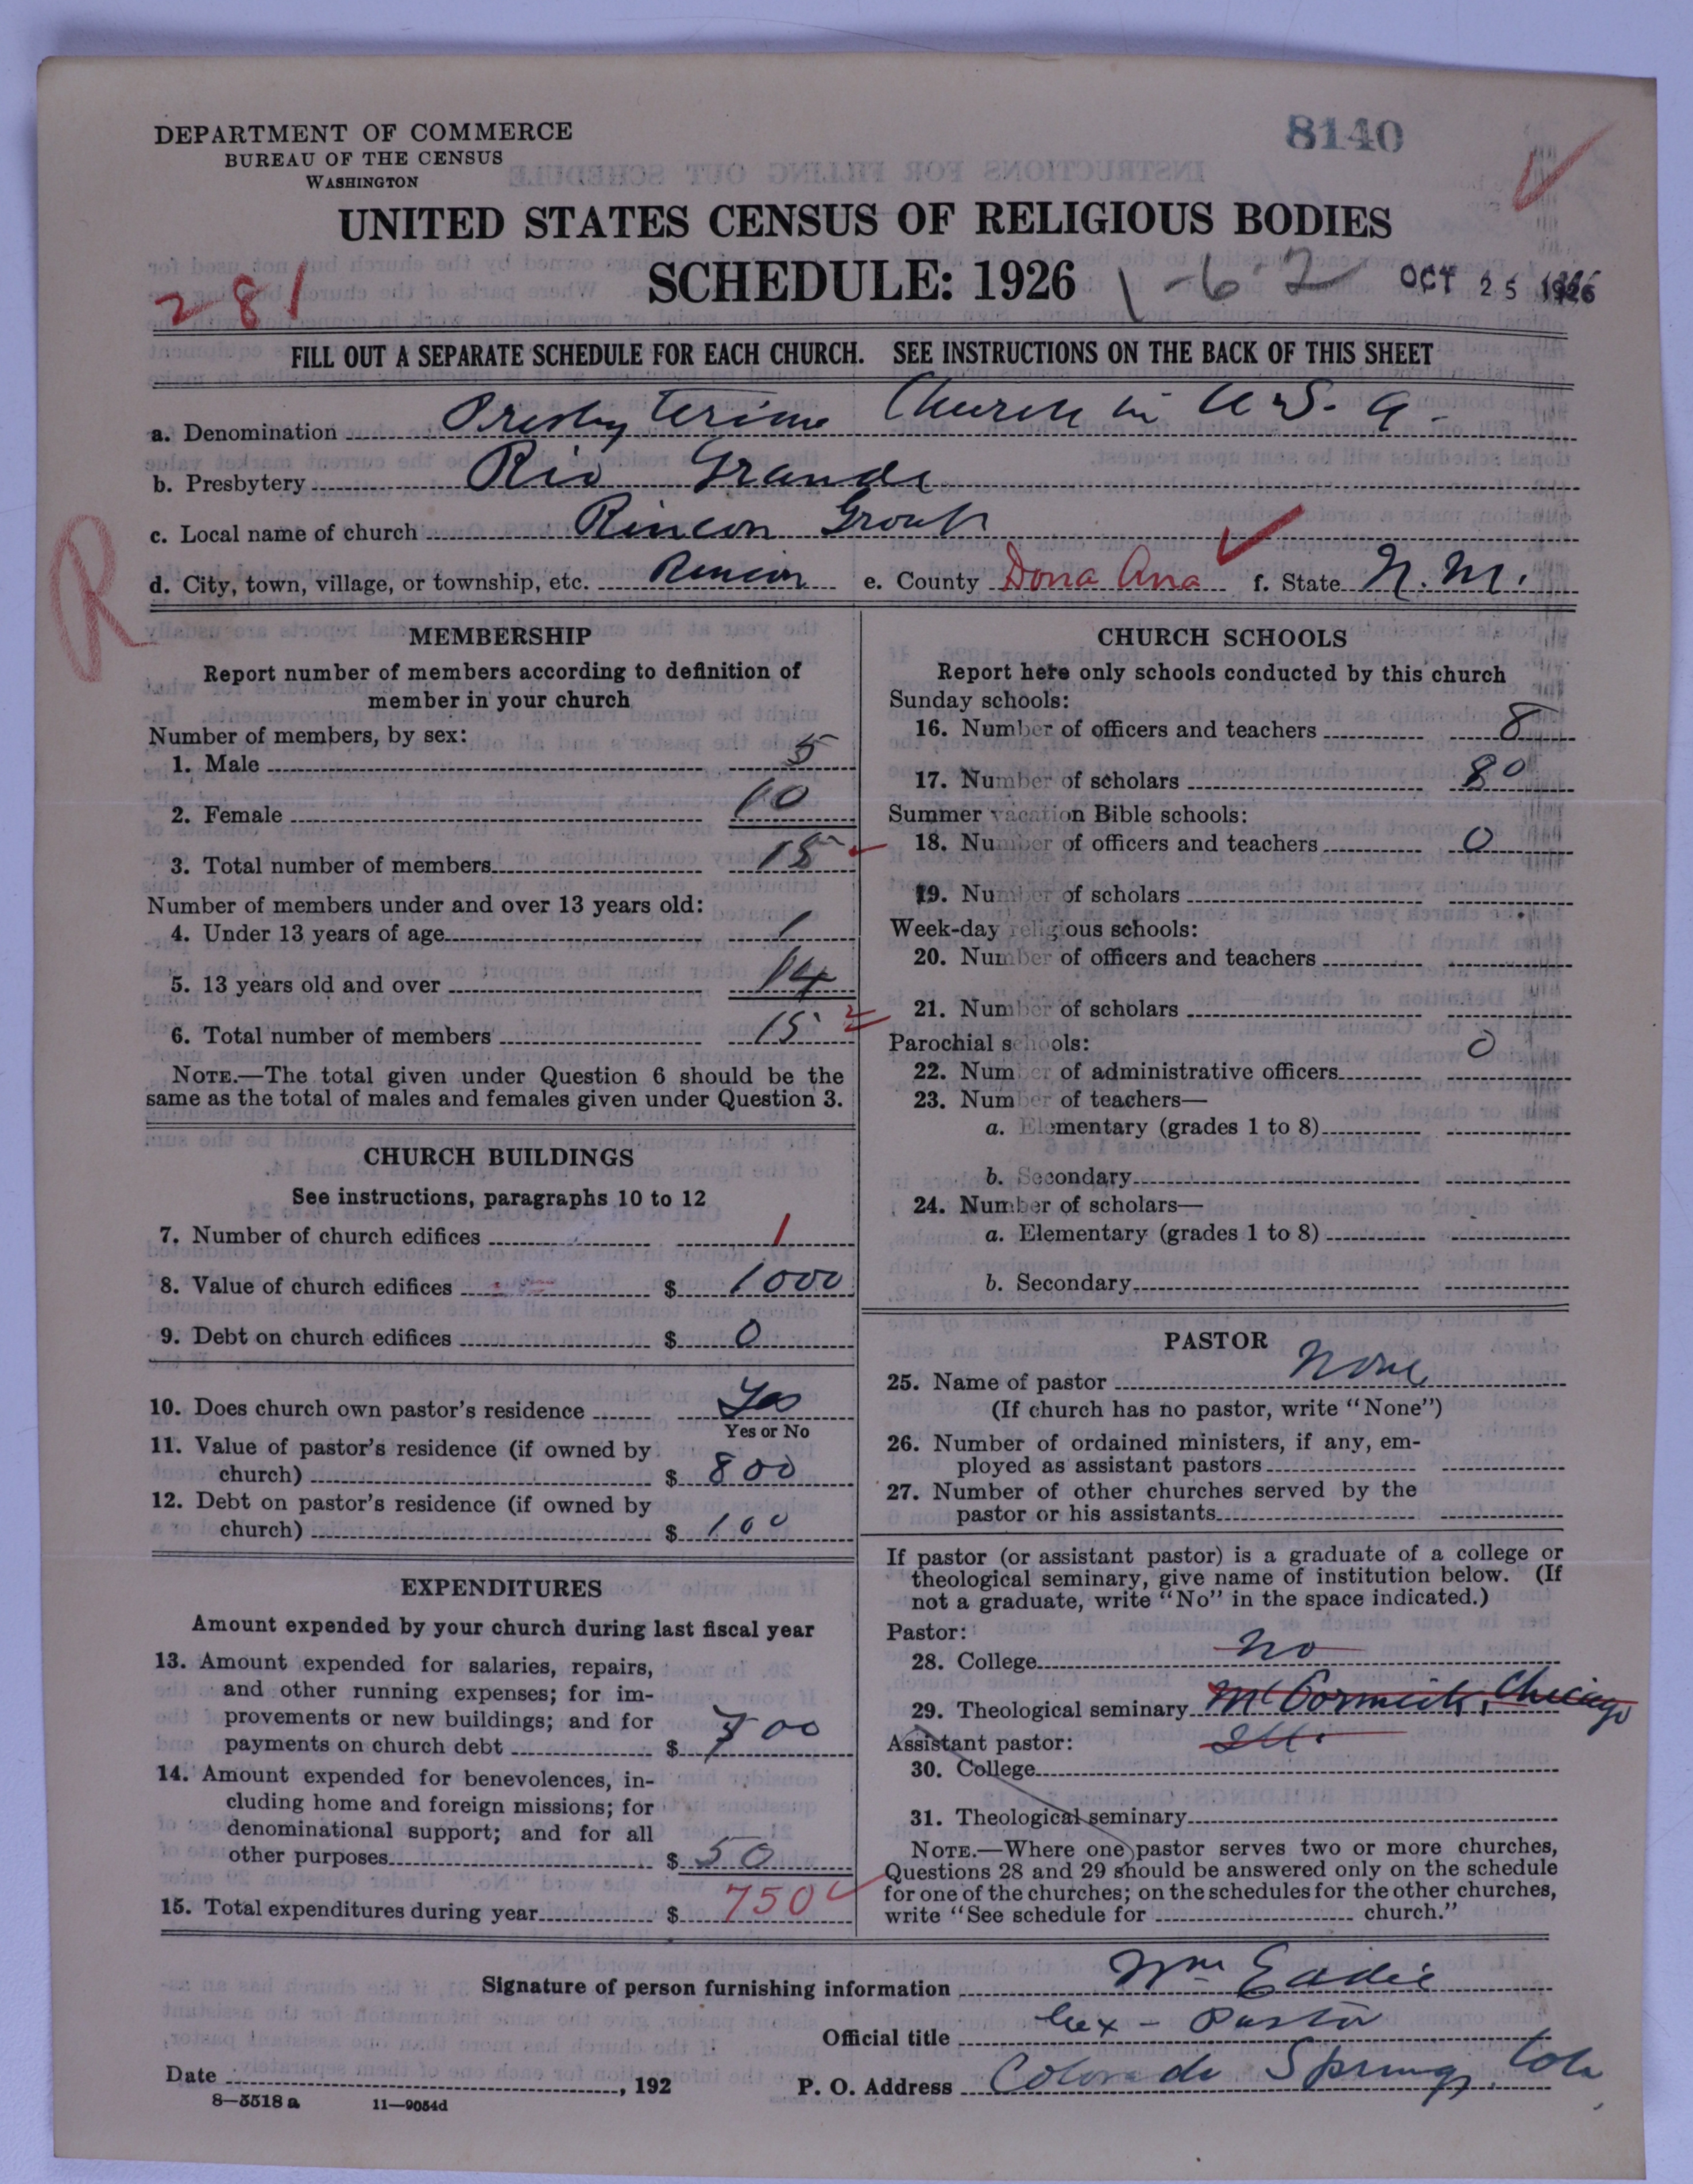 DEPARTMENT OF COMMERCE
BUREAU OF THE CENSUS
WASHINGTON
8140
UNITED STATES CENSUS OF RELIGIOUS BODIES
SCHEDULE: 1926
1-6-2
OCT 25 1926
281
FILL OUT A SEPARATE SCHEDULE FOR EACH CHURCH. SEE INSTRUCTIONS ON THE BACK OF THIS SHEET
a. Denomination Presbyterian Church in U.S.A.
b. Presbytery Rio Grande
c. Local name of church Rincon Group
R
d. City, town, village, or township, etc. Rincon e. County Dona Ana f. State N.M.
MEMBERSHIP
Report number of members according to definition of
member in your church
Number of members, by sex:
1. Male 5
2. Female 10
3. Total number of members 15
Number of members under and over 13 years old:
4. Under 13 years of age 1
5. 13 years old and over 14
6. Total number of members 15
NOTE.—The total given under Question 6 should be the
same as the total of males and females given under Question 3.
CHURCH BUILDINGS
See instructions, paragraphs 10 to 12
7. Number of church edifices 1
8. Value of church edifices $ 1000
9. Debt on church edifices $ 0
10. Does church own pastor's residence Yes
Yes or No
11. Value of pastor's residence (if owned by
church) $ 800
12. Debt on pastor's residence (if owned by
church) $ 100
EXPENDITURES
Amount expended by your church during last fiscal year
13. Amount expended for salaries, repairs,
and other running expenses; for im-
provements or new buildings; and for
payments on church debt $ 700
14. Amount expended for benevolences, in-
cluding home and foreign missions; for
denominational support; and for all
other purposes $ 50
15. Total expenditures during year $ 750
CHURCH SCHOOLS
Report here only schools conducted by this church
Sunday schools:
16. Number of officers and teachers 8
17. Number of scholars 80
Summer vacation Bible schools:
18. Number of officers and teachers 0
19. Number of scholars
Week-day religious schools:
20. Number of officers and teachers
21. Number of scholars
Parochial schools: 0
22. Number of administrative officers
23. Number of teachers—
a. Elementary (grades 1 to 8)
b. Secondary
24. Number of scholars—
a. Elementary (grades 1 to 8)
b. Secondary
PASTOR
25. Name of pastor None
(If church has no pastor, write "None")
26. Number of ordained ministers, if any, em-
ployed as assistant pastors
27. Number of other churches served by the
pastor or his assistants
If pastor (or assistant pastor) is a graduate of a college or
theological seminary, give name of institution below. (If
not a graduate, write "No" in the space indicated.)
Pastor:
28. College No
29. Theological seminary McCormick, Chicago
Ill.
Assistant pastor:
30. College
31. Theological seminary
NOTE.—Where one pastor serves two or more churches,
Questions 28 and 29 should be answered only on the schedule
for one of the churches; on the schedules for the other churches,
write "See schedule for church."
Signature of person furnishing information Wm Eadie
Official title Ex-Pastor
Date , 192
P. O. Address Colorado Springs, Colo
8—5518 a 11—9054d